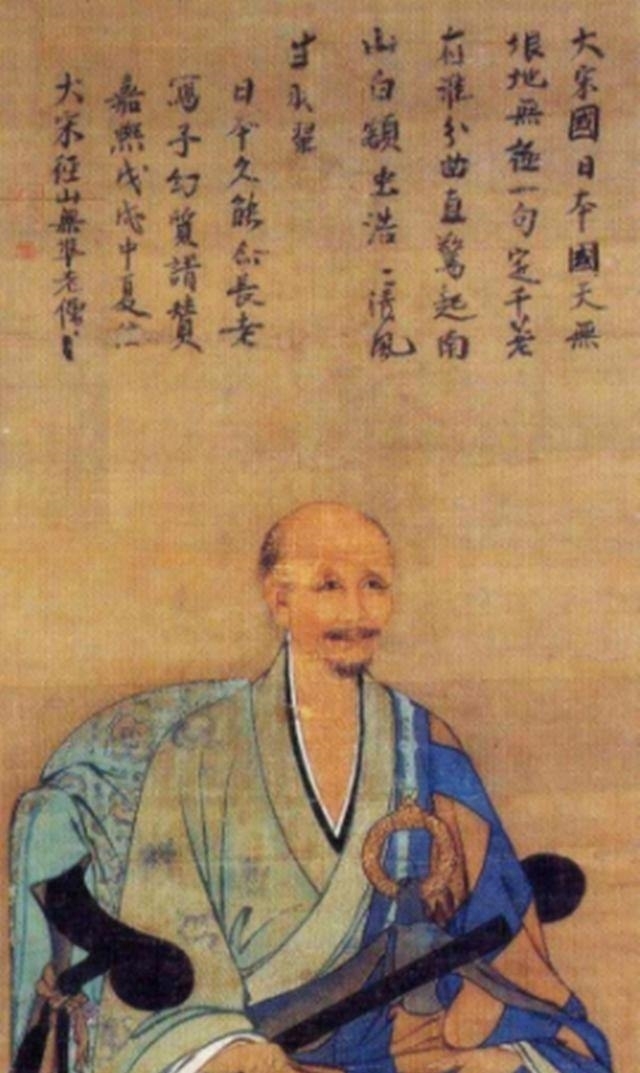 大宋國日本國天無
垠地無極一句定千差
有誰分曲直驚起南
山白額虫浩〻清風
生羽翼
日本久能尓長老
寫予幻質請賛
嘉熙戊戌中夏
大宋徑山無準老僧